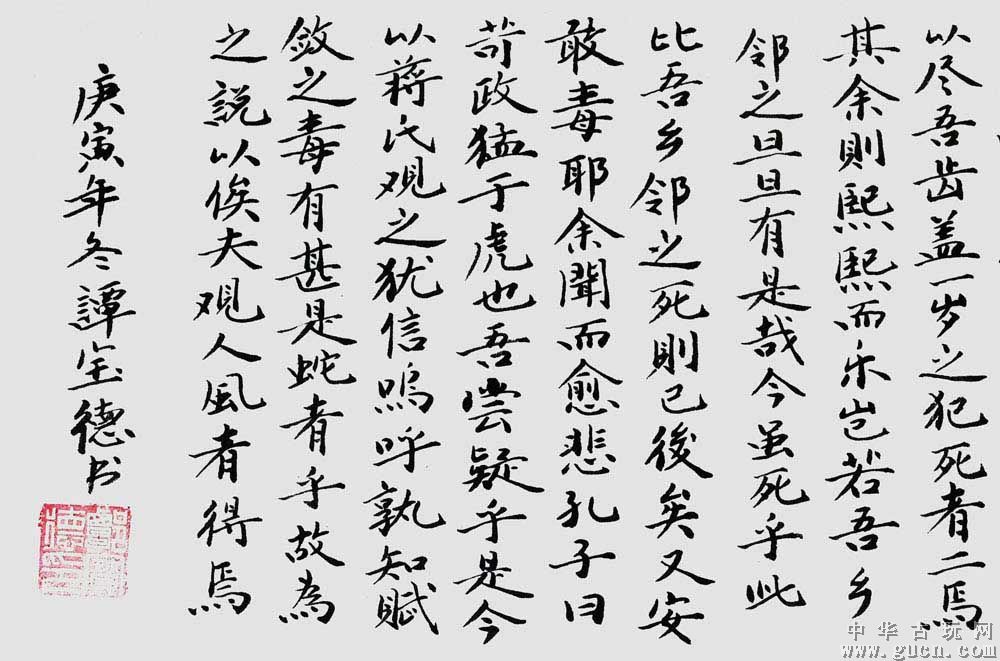 以尽吾齿盖一岁之犯死者二焉
其余則熙熙而乐岂若吾乡
邻之旦旦有是哉今虽死乎此
比吾乡邻之死則已後矣又安
敢毒耶余聞而愈悲孔子曰
苛政猛于虎也吾尝疑乎是今
以蒋氏观之犹信嗚呼孰知賦
敛之毒有甚是蛇者乎故為
之説以俟夫观人風者得焉
庚寅年冬譚宝德书
中华古玩网
www.gucn.com